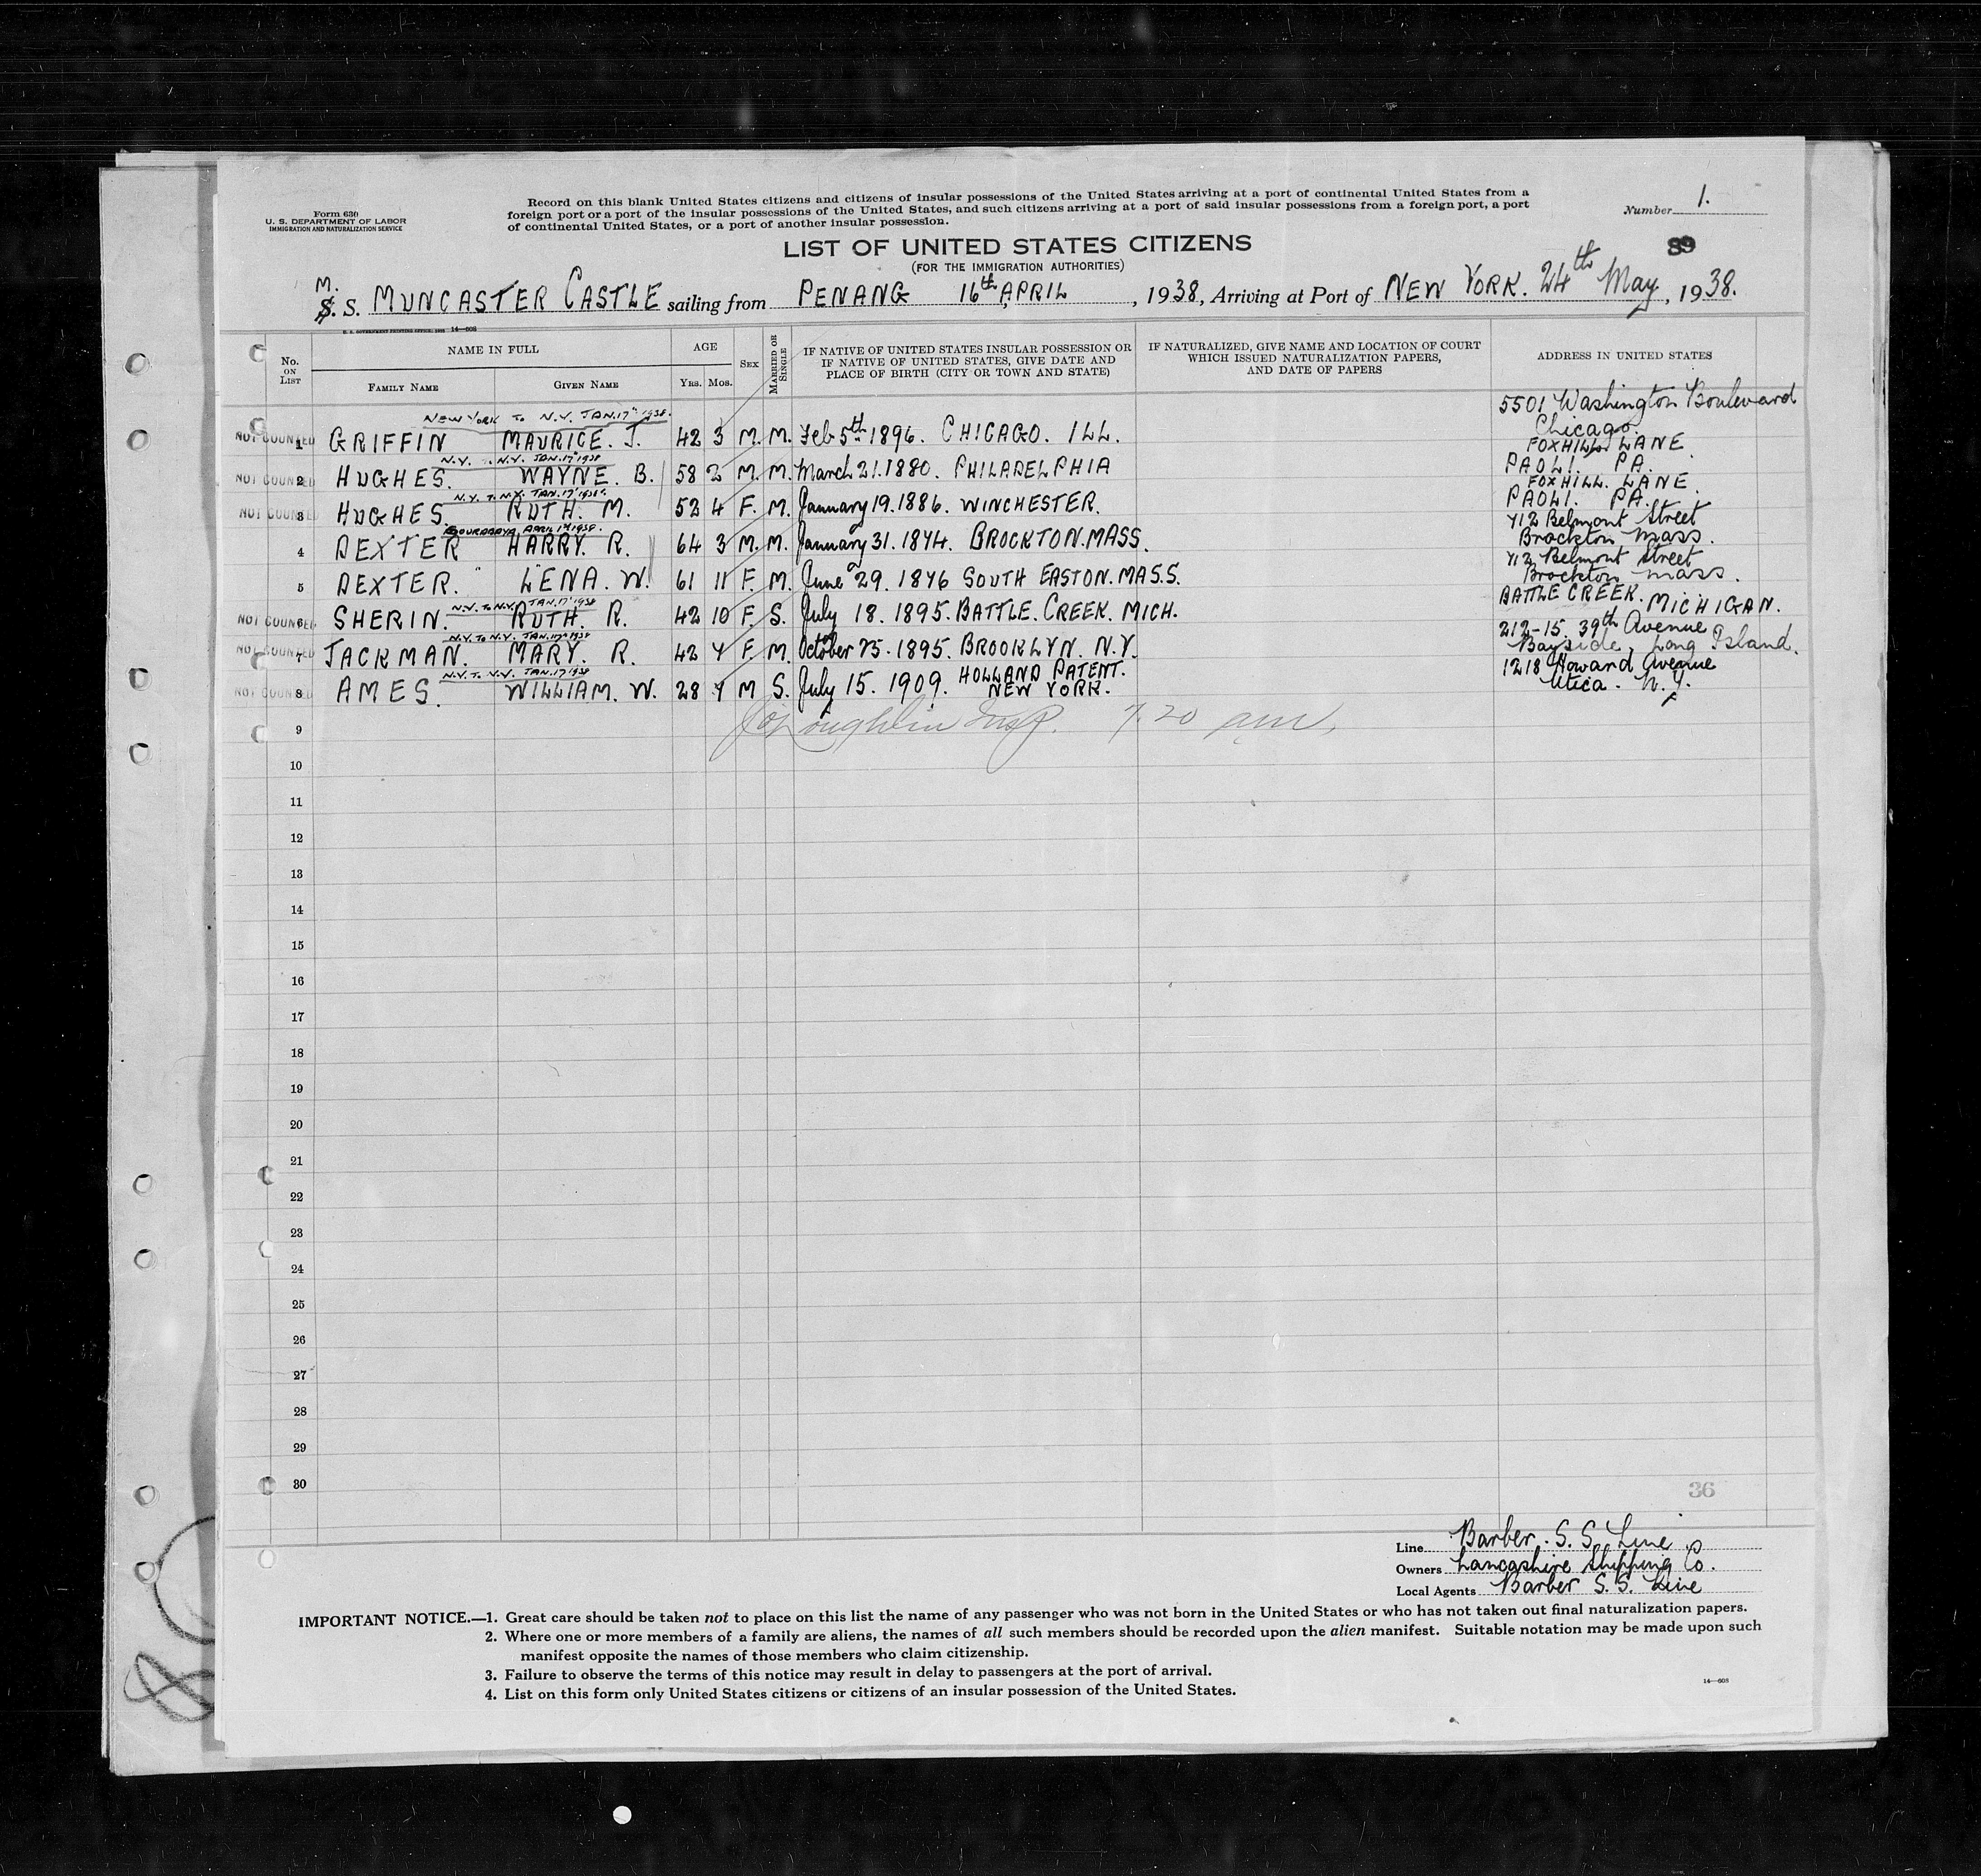 Form 630
U. S. DEPARTMENT OF LABOR
IMMIGRATION AND NATURALIZATION SERVICE
Record on this blank United States citizens and citizens of insular possessions of the United States arriving at a port of continental United States from a
foreign port or a port of the insular possessions of the United States, and such citizens arriving at a port of said insular possessions from a foreign port, a port
of continental United States, or a port of another insular possession.
Number 1.
LIST OF UNITED STATES CITIZENS
(FOR THE IMMIGRATION AUTHORITIES)
89
M.
S. S. MUNCASTER CASTLE sailing from PENANG 16th APRIL, 1938, Arriving at Port of NEW YORK. 24th May, 1938.
U. S. GOVERNMENT PRINTING OFFICE: 14—608
No. ON LIST
NAME IN FULL
FAMILY NAME
GIVEN NAME
AGE
YRS. MOS.
SEX
MARRIED OR SINGLE
IF NATIVE OF UNITED STATES INSULAR POSSESSION OR
IF NATIVE OF UNITED STATES, GIVE DATE AND
PLACE OF BIRTH (CITY OR TOWN AND STATE)
IF NATURALIZED, GIVE NAME AND LOCATION OF COURT
WHICH ISSUED NATURALIZATION PAPERS,
AND DATE OF PAPERS
ADDRESS IN UNITED STATES
NEW YORK TO N.Y. JAN. 17th 1938.
NOT COUNTED 1 GRIFFIN MAURICE. J. 42 3 M. M. Feb 5th 1896. CHICAGO. ILL. 5501 Washington Boulevard
Chicago.
N.Y. N.Y. JAN. 17th 1938
NOT COUNTED 2 HUGHES. WAYNE. B. 58 2 M. M. March 21. 1880. PHILADELPHIA FOXHILL LANE
PAOLI. PA.
N.Y. TO N.Y. JAN. 17th 1938.
NOT COUNTED 3 HUGHES. RUTH. M. 52 4 F. M. January 19. 1886. WINCHESTER. FOXHILL. LANE.
PAOLI. PA.
SOURABAYA APRIL 1st 1938.
4 DEXTER HARRY. R. 64 3 M. M. January 31. 1874. BROCKTON. MASS. 712 Belmont Street
Brockton Mass.
5 DEXTER. " LENA. W. 61 11 F. M. June 29. 1876 SOUTH EASTON. MASS. 712 Belmont Street
Brockton Mass.
N.Y. TO N.Y. JAN. 17th 1938
NOT COUNTED 6 SHERIN. RUTH. R. 42 10 F. S. July 18. 1895. BATTLE. CREEK. MICH. BATTLE CREEK. MICHIGAN.
N.Y. TO N.Y. JAN. 17th 1938
NOT COUNTED 7 JACKMAN. MARY. R. 42 7 F. M. October 25. 1895. BROOKLYN. N.Y. 212-15. 39th Avenue
Bayside, Long Island.
N.Y. TO N.Y. JAN. 17th 1938
NOT COUNTED 8 AMES. WILLIAM. W. 28 7 M S. July 15. 1909. HOLLAND PATENT.
NEW YORK. 1218 Howard Avenue
Utica. N.Y.
Insp. 7.20 am.
9
10
11
12
13
14
15
16
17
18
19
20
21
22
23
24
25
26
27
28
29
30
36
Line Barber. S. S. Line
Owners Lancashire Shipping Co.
Local Agents Barber S. S. Line
IMPORTANT NOTICE.—1. Great care should be taken not to place on this list the name of any passenger who was not born in the United States or who has not taken out final naturalization papers.
2. Where one or more members of a family are aliens, the names of all such members should be recorded upon the alien manifest. Suitable notation may be made upon such
manifest opposite the names of those members who claim citizenship.
3. Failure to observe the terms of this notice may result in delay to passengers at the port of arrival.
4. List on this form only United States citizens or citizens of an insular possession of the United States.
14—608